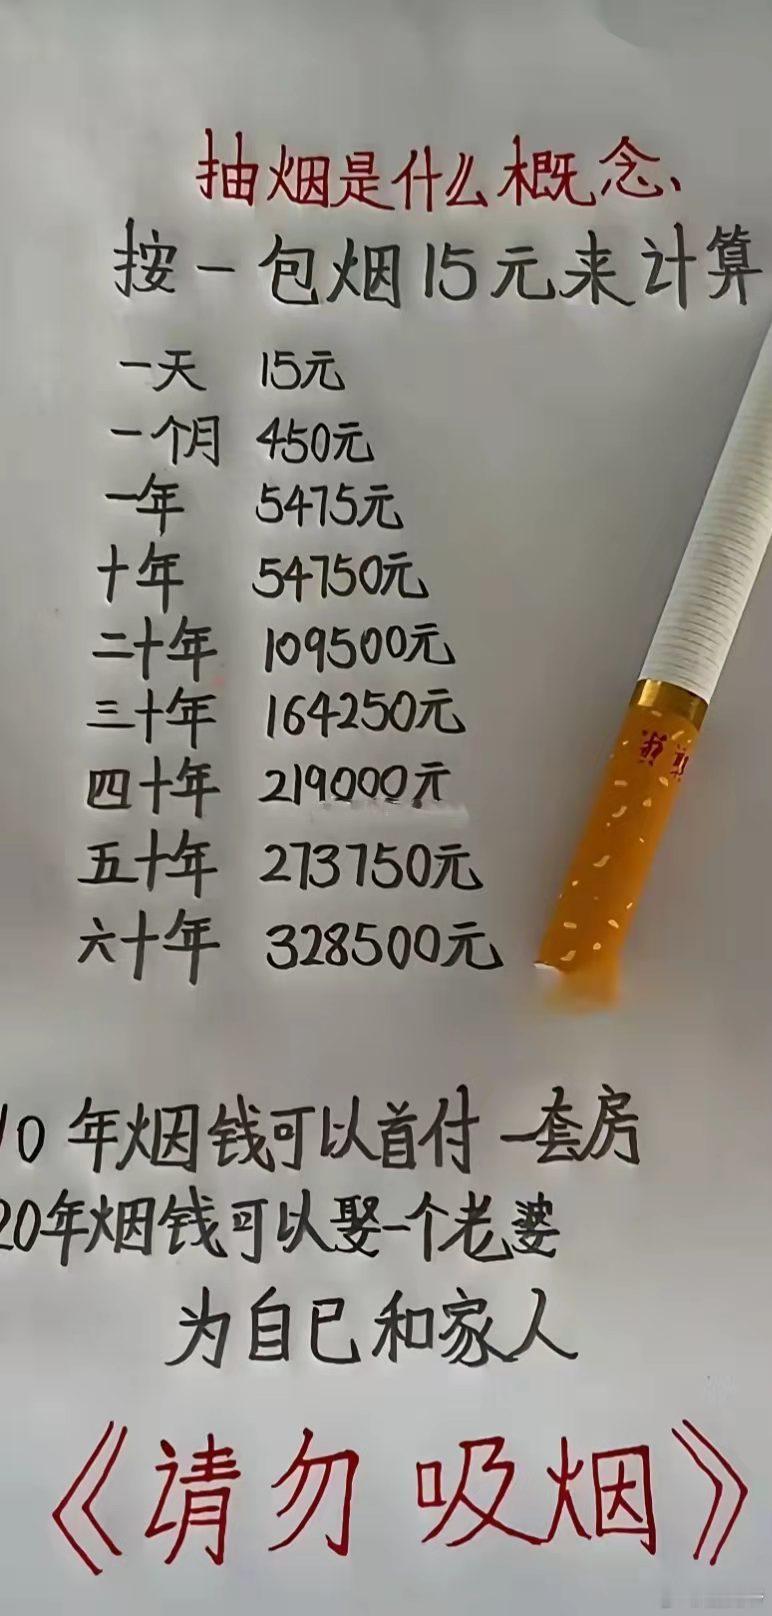 抽烟是什么概念、
按一包烟15元来计算
一天 15元
一个月 450元
一年 5475元
十年 54750元
二十年 109500元
三十年 164250元
四十年 219000元
五十年 273750元
六十年 328500元
10年烟钱可以首付一套房
20年烟钱可以娶一个老婆
为自己和家人
《请勿吸烟》